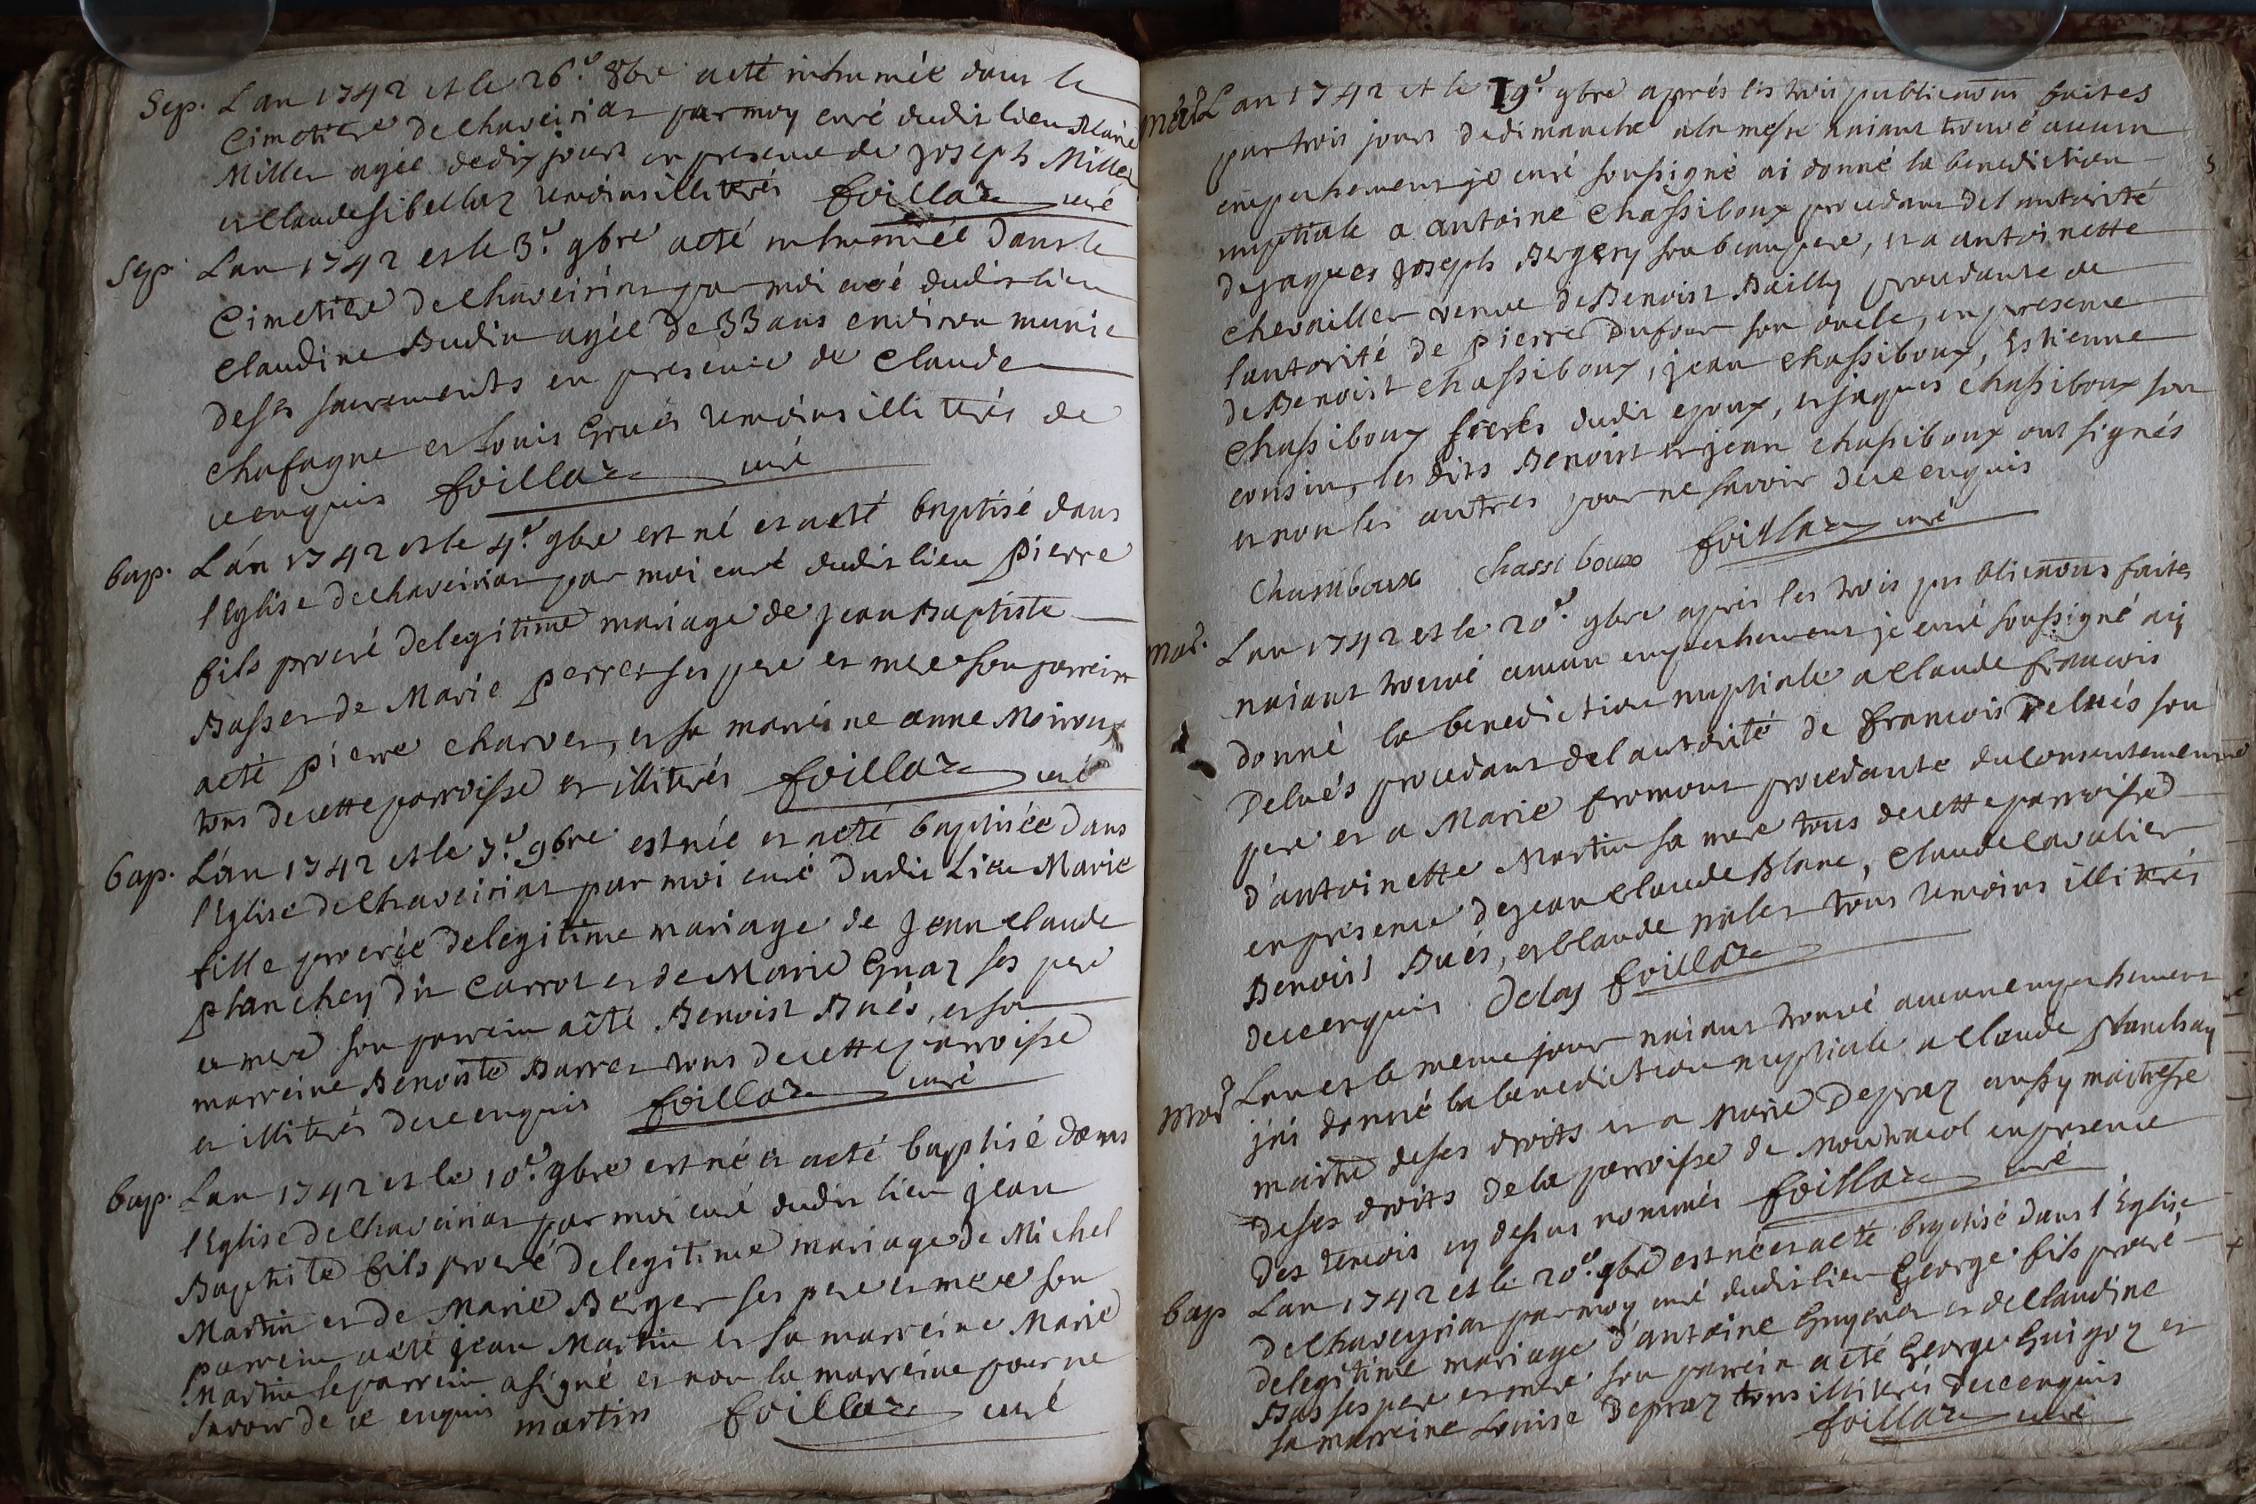 Sep. L'an 1742 et le 26.e 8bre a eté inhumée dans le
Cimetiere de Chaveiriat par moy curé dudit lieu Marie
Millet agée de dix jours en presence de Joseph Millet
et Claude Sibellaz temoins illiterés foillaz curé
Sep. L'an 1742 et le 3.e 9bre a eté inhumée dans le
Cimetiere de Chaveiriat par moi curé dudit lieu
Claudine Budin agée de 33 ans environ munie
de ses sacrements en presence de Claude
Chafagne et Louis Grués temoins illiterés de
ce enquis foillaz curé
bap. L'an 1742 et le 4.e 9bre est né et a eté baptisé dans
l'Eglise de Chaveiriat par moi curé dudit lieu Pierre
fils procréé de legitime mariage de Jean Baptiste
Basset de Marie Perret ses pere et mere son parrein
a eté Pierre Charvet, et sa marreine anne Moiroux
tous de cette parroisse et illiterés foillaz curé
bap. L'an 1742 et le 7.e 9bre est née et a eté baptisée dans
l'Eglise de Chaveiriat par moi curé dudit Lieu Marie
fille procréée de legitime mariage de Jean Claude
Planchey dit Carrot et de Marie Guaz ses pere
et mere son parrein a eté Benoist Bués, et sa
marreine Benoiste Barret tous de cette parroisse
et illiterés de ce enquis foillaz curé
bap. L'an 1742 et le 10.e 9bre est né et a eté baptisé dans
l'Eglise de Chaveiriat par moi curé dudit lieu Jean
Baptiste fils procréé de legitime mariage de Michel
Martin et de Marie Berger ses pere et mere son
parrein a eté Jean Martin et sa marreine Marie
Martin le parrein a signé et non la marreine pour ne
savoir de ce enquis martin foillaz curé
L'an 1742 et le 19.e 9bre aprés les trois publications faites
par trois jours de dimanche a la messe n'aiant trouvé aucun
empechement je curé soussigné ai donné la benediction
nuptiale a antoine Chassiboux procedant de l'autorité
de Jaques Joseph Bergery son beaupere, et a antoinette
Chevailler veuve de Benoist Bailly procedante de
l'autorité de Pierre Dufour son oncle, en presence
de Benoist Chassiboux, Jean Chassiboux, Estienne
Chassiboux freres dudit epoux, et Jaques Chassiboux son
cousin, lesdits Benoist et Jean Chassiboux ont signés
et non les autres pour ne savoir de ce enquis
Chassiboux Chassiboux foillaz curé
mar. L'an 1742 et le 20.e 9bre apres les trois publications faites
n'aiant trouvé aucun empechement je curé soussigné aij
donné la benediction nuptiale a Claude francois
Velués procedant de l'autorité de francois Velués son
pere et a Marie fromont procedante du consentement
d'antoinette Martin sa mere tous de cette parroisse
en presence de Jean Claude Blanc, Claude Cavalier
Benoist Bués, et Claude tous temoins illiterés
de ce enquis foillaz
mar L'an et le meme jour n'aiant trouvé aucun empechement
j'ai donné la benediction nuptiale a Claude Planchay
maitre de ses droits et a Marie Depraz aussy maitresse
de ses droits de la parroisse de Montracol en presence
des temoins cy dessus nommés foillaz curé
bap L'an 1742 et le 20.e 9bre est né et a eté baptisé dans l'Eglise
de Chaveyriat par moy curé dudit lieu George fils procréé
de legitime mariage d'antoine Guyenot et de Claudine
Bas ses pere et mere son parrein a eté George Guigoz et
sa marreine Louise Depraz tous illiterés de ce enquis
foillaz curé